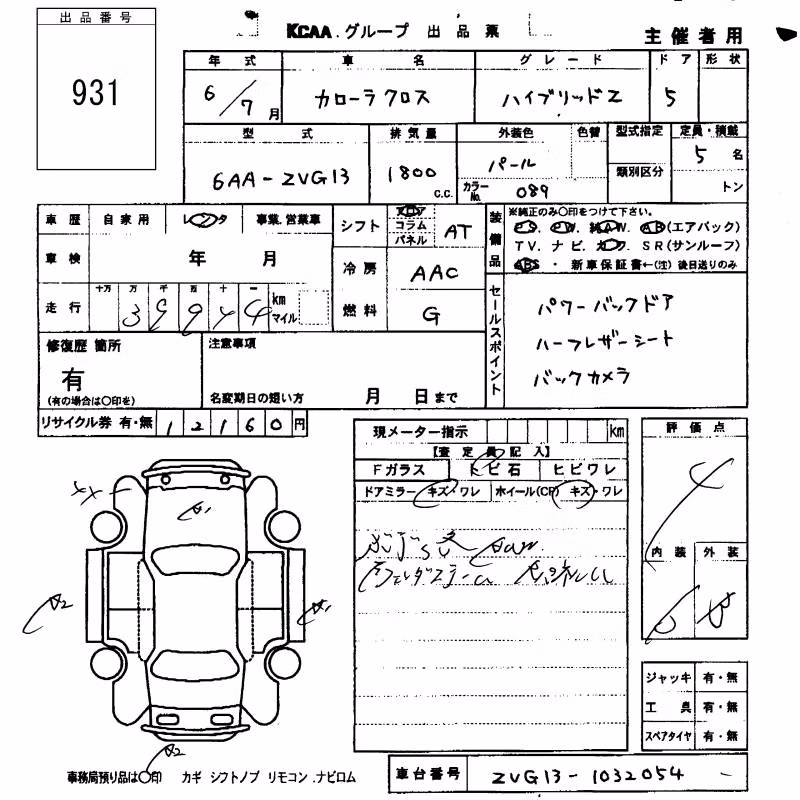 出品番号
931
KCAA.グループ 出品票
主催者用
年式 車名 グレード ドア 形状
6/7月 カローラクロス ハイブリッドZ 5
型式 排気量 外装色 色替 型式指定 定員・積載
6AA-ZVG13 1800 c.c. パール カラーNo. 089 類別区分 5名
トン
車歴 自家用 レンタ 事業.営業車
車検 年 月
走行 十万 万 千 百 十 一
39944 km マイル
シフト フロア コラム パネル AT
冷房 AAC
燃料 G
装備品
※純正のみ○印をつけて下さい。
PS. PW. 純AW. AB(エアバック)
TV. ナビ. カワ. SR(サンルーフ)
ABS ・ 新車保証書←(注)後日送りのみ
セールスポイント
パワーバックドア
ハーフレザーシート
バックカメラ
修復歴 箇所
有
(有の場合は○印を)
注意事項
名変期日の短い方 月 日まで
リサイクル券 有・無 12160円
現メーター指示 km
【査定員記入】
Fガラス トビ石 ヒビワレ
ドアミラー キズ・ワレ ホイール(CP) キズ・ワレ
評価点
4
内装 外装
XX
A1
A2
A1
A2
ジャッキ 有・無
工具 有・無
スペアタイヤ 有・無
事務局預り品は○印 カギ シフトノブ リモコン.ナビロム
車台番号 ZVG13-1032054